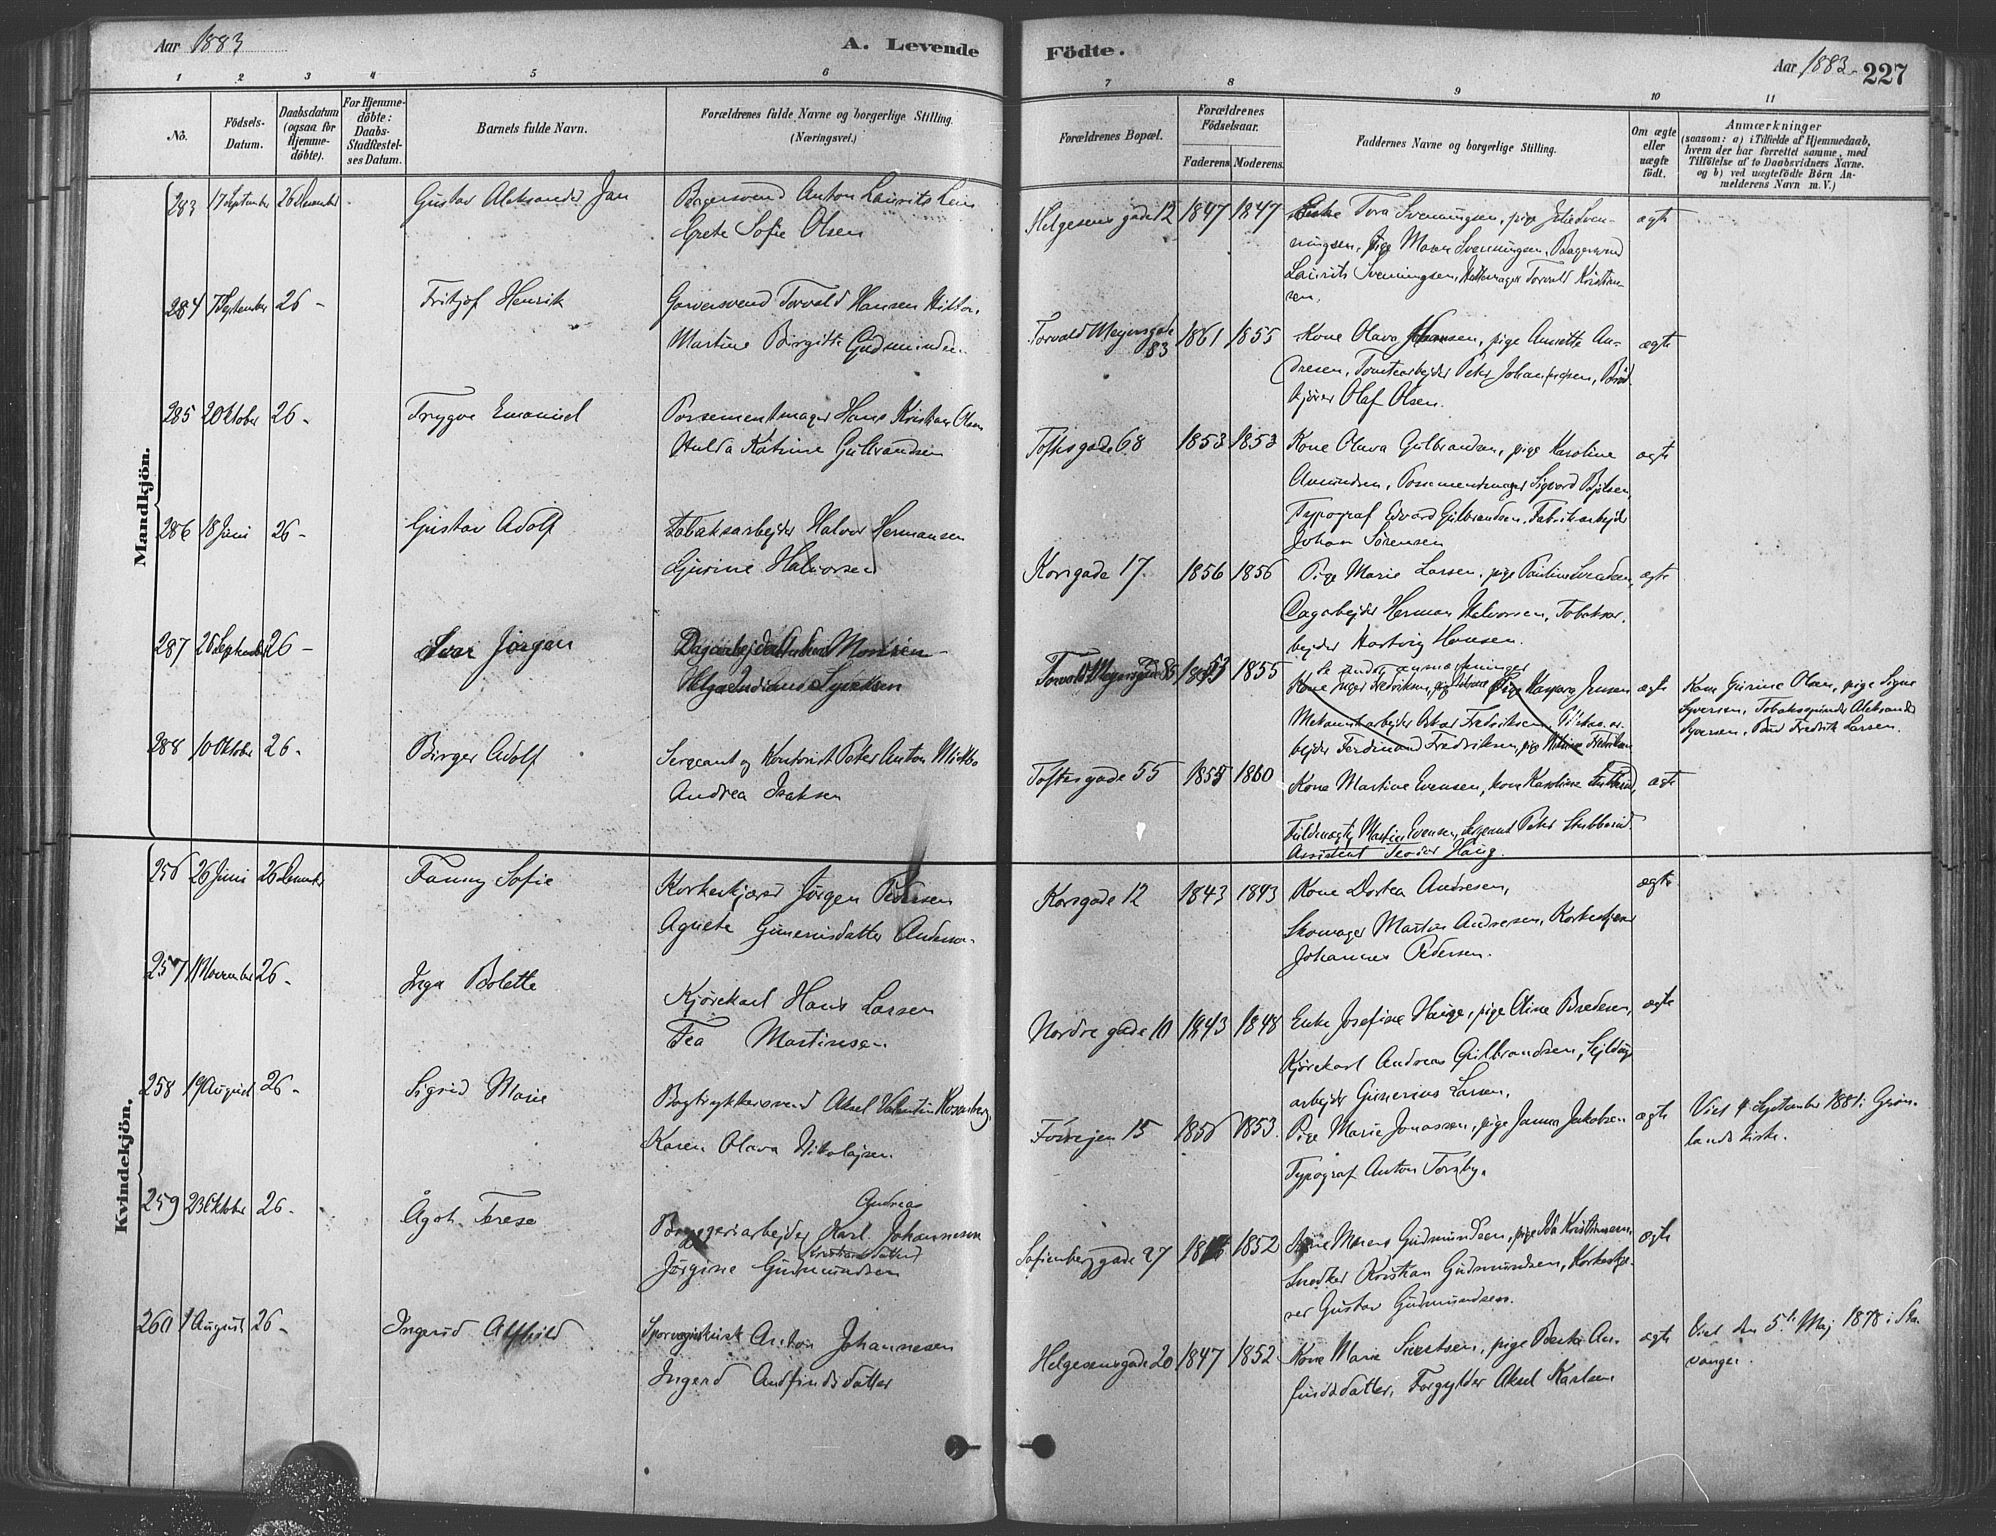 Aar 1883
A. Levende
Födte.
Aar 1883
227
1 2 3 4 5 6 7 8 9 10 11
No.
Födsels-
Datum.
Daabsdatum
(ogsaa for
Hjemme-
döbte).
For Hjemme-
döbte:
Daabs-
Stadfæstel-
ses Datum.
Barnets fulde Navn.
Forældrenes fulde Navne og borgerlige Stilling.
(Næringsvei.)
Forældrenes Bopæl.
Forældrenes
Födselsaar.
Faderens.
Moderens.
Faddernes Navne og borgerlige Stilling.
Om ægte
eller
uægte
födt.
Anmærkninger
(saasom: a) i Tilfælde af Hjemmedaab,
hvem der har forrettet samme, med
Tilföielse af to Daabsvidners Navne,
og b) ved uægtefödte Börn An-
melderens Navn m. V.)
Mandkjön.
283 17 September 26 December Gustav Aleksander Jan
Bagersvend Anton Laurits
Grete Sofie Olsen
Helgesens gade 12 1847 1847
Tora Svenningsen, pige Julie Sven-
ningsen, pige Maren Svenningsen, Bagersvend
Laurits Svenningsen, Torvald Kristian-
sen.
ægte
284 7 September 26 - Fritjof Henrik
Garversvend Torvald Hansen
Martine Birgitte Gudmundsen
Torvald Meyersgade
83 1861 1855
Kone Olava Hansen, pige Annette An-
dresen, Tomtearbejder Peter Johannesen, Bröd-
kjörer Olaf Olsen.
ægte
285 2 Oktober 26 - Trygve Emanuel
Possementmager Hans Kristian Olsen
Hulda Katrine Gulbrandsen
Toftesgade 68 1853 1853
Kone Olava Gulbrandsen, pige Karoline
Amundsen, Possementmager Sigvard
Typograf Edvard Gulbrandsen, Fabrikarbejder
Johan Sörensen
ægte
286 18 Juni 26 - Gustav Adolf
Tobaksarbejder Halvor Hermansen
Gurine Halvorsen
Korsgade 17. 1856 1856
Pige Marie Larsen, pige Pauline Svendsen,
Dagarbejder Herman Halvorsen, Tobaksar-
bejder Hartvig Hansen.
ægte
287 25 September 26 - Ivar Jörgen
Dagarbejder Monsen
Helga Syversen
Torvald Meyersgade 1855
Se under anmærkninger
Kone Fredriksen, pige Jensen
Mekanikarbejder Oskar Fredriksen,
bejder Ferdinand Fredriksen, pige Fredriksen
ægte
Kone Gurine Olsen, pige Signe
Syversen, Tobaksspinder Aleksander
Syversen, Fredrik Larsen.
288 10 Oktober 26 - Birger Adolf
Sergeant og Kontorist Peter Anton
Andrea Isaksen
Toftesgade 55 1855 1860
Kone Martine Evensen, kone Karoline
Fuldmægtig Martin Evensen, Sergeant Peter Stubberud
Assistent Teodor Haug.
ægte
Kvindekjön.
256 26 Juni 26 December Fanny Sofie
Korkeskjærer Jörgen Pedersen
Agnete Gunerusdatter
Korsgade 12 1843 1843
Kone Dortea Andresen,
Skomager Martin Andresen, Korkeskjærer
Johannes Pedersen.
ægte
257 1 November 26 - Inga Bolette
Kjörekarl Hans Larsen
Tea Martinsen
Nordre gade 10 1843 1848
Enke Josefine Hauge, pige Oline Bredesen,
Kjörekarl Andreas Gulbrandsen, Sejldugs-
arbejder Gunerius Larsen.
ægte
258 19 August 26 - Sigrid Marie
Bogtrykkersvend Aksel Valentin Rosenberg
Karen Olava Nikolajsen
Fossvejen 15 1856 1853.
Pige Marie Jonassen, pige Janna Jakobsen
Typograf Anton Torsby.
ægte
Viet 4 September 1881 i Grön-
lands kirke.
259 23 Oktober 26 - Ågot Terese
Andreas
Bryggeriarbejder Karl Johannesen
Kristiansdatter
Jörgine Gudmundsen
Sofienberggade 27 1852
Maren Gudmundsen, pige Ida Kristiansen,
Snedker Kristian Gudmundsen, Korkeskjæ-
rer Gustav Gudmundsen.
ægte
260 1 August 26 - Ingerid Alfhild
Anton Johannesen
Ingerid Andfindsdatter
Helgesensgade 20 1847 1852
Kone Marie Sivertsen, pige Berte An-
findsdatter, Forgylder Aksel Karlsen
ægte
Viet den 5te Maj 1878 i Sta-
vanger.